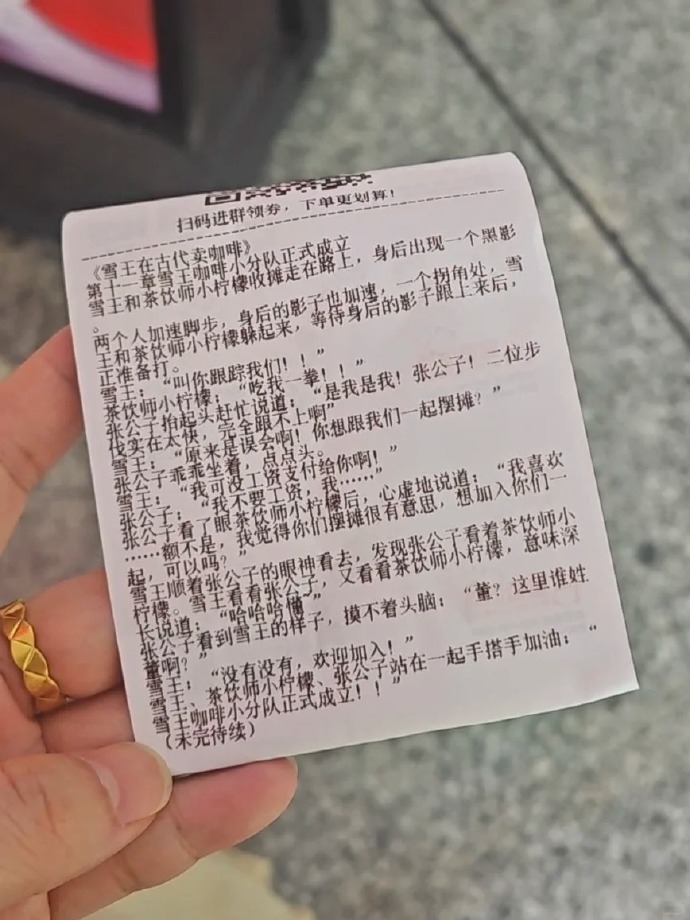 扫码进群领券，下单更划算！
《雪王在古代卖咖啡》
第十一章雪王咖啡小分队正式成立
雪王和茶饮师小柠檬收摊走在路上，身后出现一个黑影
。
两个人加速脚步，身后的影子也加速，一个拐角处，雪
王和茶饮师小柠檬躲起来，等待身后的影子跟上来后，
正准备打。
雪王：“叫你跟踪我们！！”
茶饮师小柠檬：“吃我一拳！！”
张公子抬起头赶忙说道：“是我是我！张公子！二位步
伐实在太快，完全跟不上啊”
雪王：“原来是误会啊！你想跟我们一起摆摊？”
张公子乖乖坐着，点点头。
雪王：“我可没工资支付给你啊！”
张公子：“我不要工资，我……”
张公子看了眼茶饮师小柠檬后，心虚地说道：“我喜欢
……额不是，我觉得你们摆摊很有意思，想加入你们一
起，可以吗？”
雪王顺着张公子的眼神看去，发现张公子看着茶饮师小
柠檬。雪王看看张公子，又看看茶饮师小柠檬，意味深
长说道：“哈哈哈懂”
张公子看到雪王的样子，摸不着头脑：“董？这里谁姓
董啊？”
雪王：“没有没有，欢迎加入！”
雪王、茶饮师小柠檬、张公子站在一起手搭手加油：“
雪王咖啡小分队正式成立！！”
（未完待续）